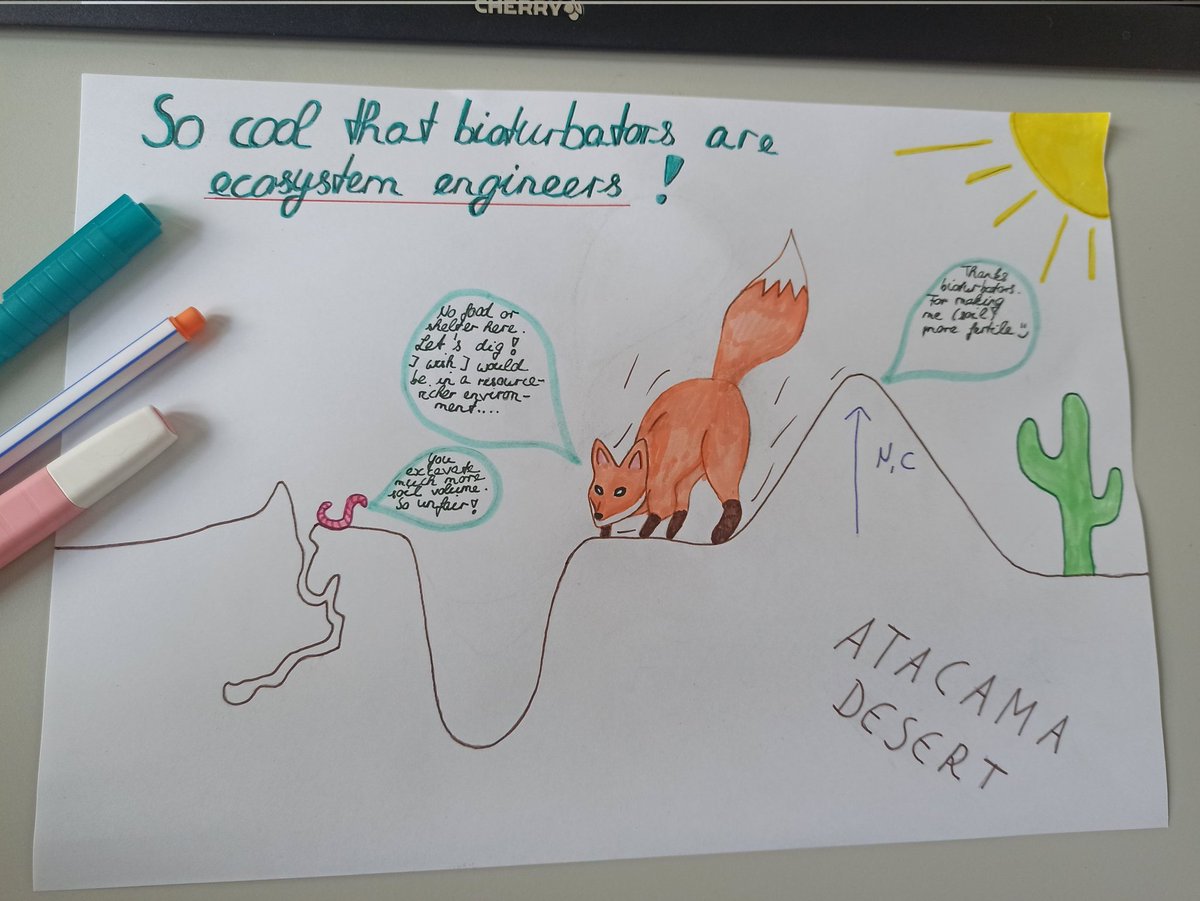 CHERRY
So cool that bioturbators are
ecosystem engineers!
Thanks
bioturbators.
For making
me (soil)
more fertile
No food or
shelter here.
Let's dig!
I wish I would
be in a resource-
richer environ-
ment....
You
excavate
much more
soil volume.
So unfair!
N, C
ATACAMA
DESERT